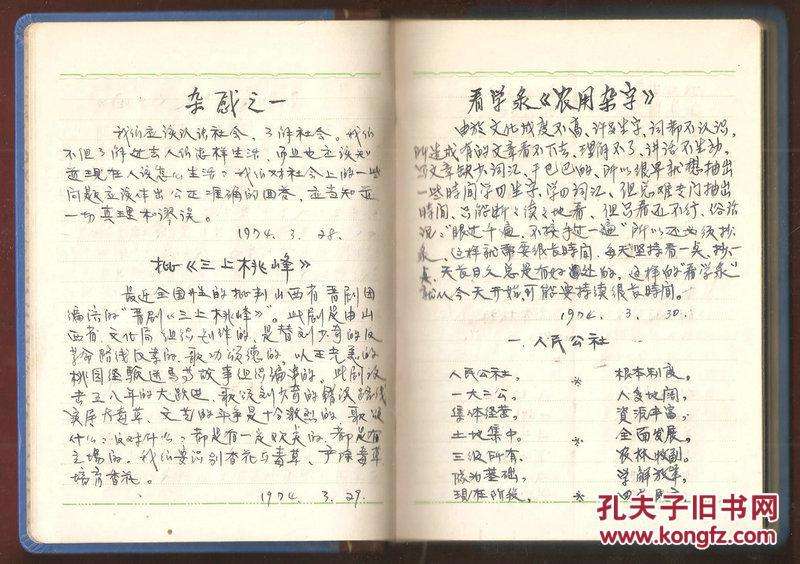 杂感之一
我们应该认识社会，了解社会。我们
不但了解过去人们怎样生活，而且也应该知
道现在人该怎么生活？我们对社会上的一些
问题应该作出公正准确的回答，应当知道
一切真理和谬误。
1974.3.28.
批《三上桃峰》
最近全国开始批判山西省晋剧团
编演的"晋剧《三上桃峰》"。此剧是由山
西省文化局组织创作的，是替刘少奇的反
革命路线翻案的，歌功颂德的，以王光美的
桃园经验送马等故事组织编串的。此剧攻
击五八年的大跃进，歌颂刘少奇的错误路线
实属大毒草。文艺的斗争是十分激烈的，歌颂
什么？反对什么？都是有一定观点的，都是有
立场的。我们要识别香花与毒草，严除毒草
培育香花。
1974.3.29.
看学录《农用杂字》
由于文化程度不高，许多生字、词都不认识，
所造成有的文章看不下去，理解不了，讲话不生动，
写文章缺少词汇，干巴巴的，所以很早就想抽出
一些时间学习生字、学习词汇，但总难专门抽出
时间、只能断断续续地看，但只看还不行，俗话
说："眼过千遍，不如手过一遍"所以还必须抄
录，这样就需要很长时间，每天坚持看一点、抄一
点，天长日久总是有好处的，这样的"看学录"
就从今天开始可能要持续很长时间。
1974.3.30.
一、人民公社
人民公社， * 根本制度。
一大二公， 人多地阔，
集体经营， 资源丰富，
土地集中。 * 全面发展。
三级所有， 农林牧副。
队为基础，
现在阶段， *
孔夫子旧书网
kongfz.com